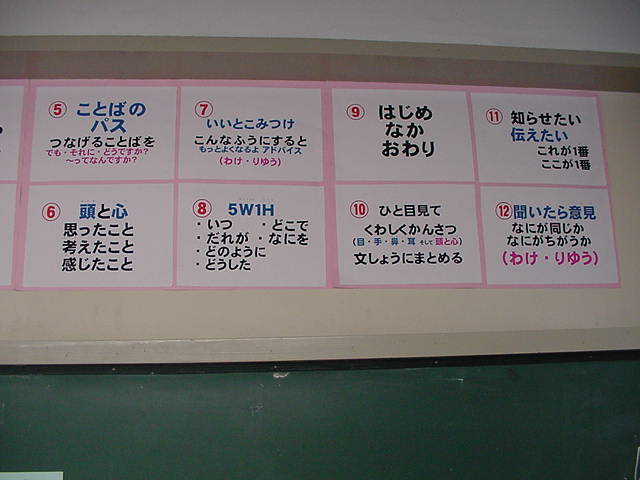 ⑤ ことばの
パス
つなげることばを
でも・それに・どうですか?
~ってなんですか?
⑥ 頭と心
思ったこと
考えたこと
感じたこと
⑦
いいとこみつけ
こんなふうにすると
もっとよくなるよ アドバイス
(わけ・りゆう)
⑧ 5W1H
・いつ ・どこで
・だれが ・なにを
・どのように
・どうした
⑨ はじめ
なか
おわり
⑩ ひと目見て
くわしくかんさつ
(目・手・鼻・耳 そして 頭と心)
文しょうにまとめる
⑪ 知らせたい
伝えたい
これが1番
ここが1番
⑫ 聞いたら意見
なにが同じか
なにがちがうか
(わけ・りゆう)